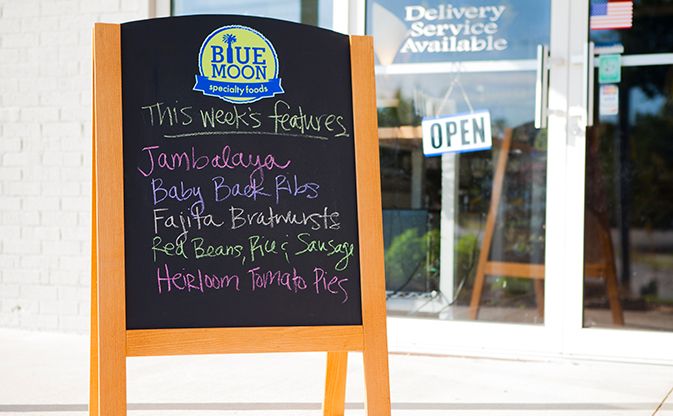 Delivery Service
Available
BLUE
MOON
specialty foods
This week's features
OPEN
Jambalaya
Baby Back Ribs
Fajita Bratwursts
Red Beans, Rice & Sausage
Heirloom Tomato Pies